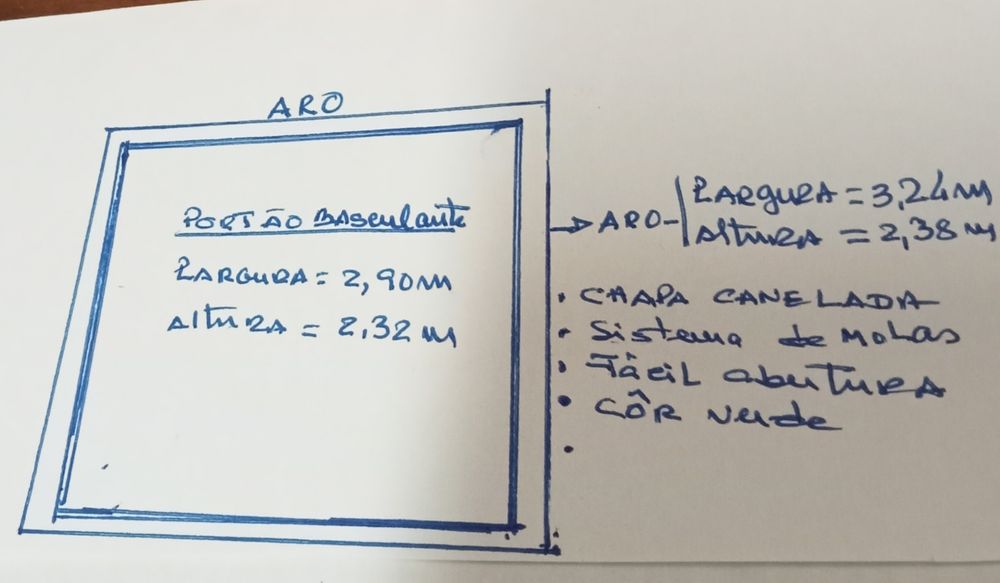 ARO
PORTÃO BASCULANTE
LARGURA = 2,90 M
ALTURA = 2,32 M
ARO - LARGURA = 3,24 M
ALTURA = 2,38 M
• CHAPA CANELADA
• Sistema de Molas
• Fácil abertura
• CÔR verde
•